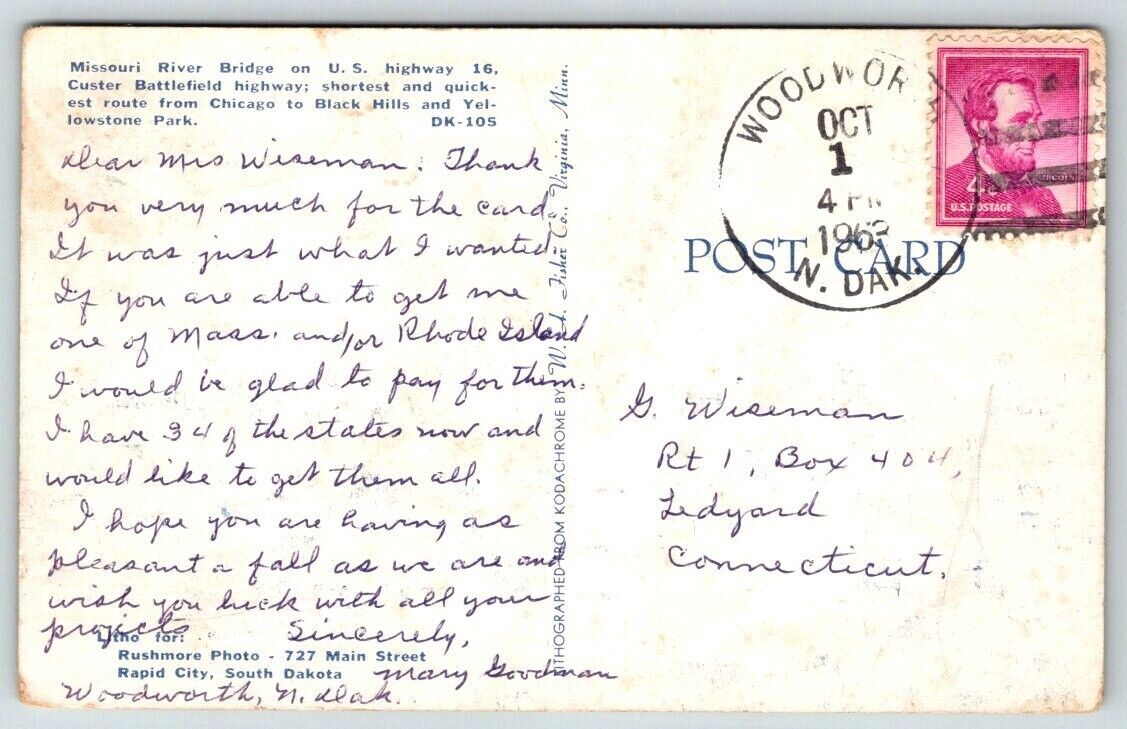 Missouri River Bridge on U.S. highway 16,
Custer Battlefield highway; shortest and quick-
est route from Chicago to Black Hills and Yel-
lowstone Park. DK-105
Dear Mrs Wiseman. Thank
you very much for the card
It was just what I wanted
If you are able to get me
one of Mass. and/or Rhode Island
I would be glad to pay for them.
I have 34 of the states now and
would like to get them all.
I hope you are having as
pleasant a fall as we are and
wish you luck with all your
projects. Sincerely,
Mary Goodman
Woodworth, N. Dak.
Litho for:
Rushmore Photo - 727 Main Street
Rapid City, South Dakota
LITHOGRAPHED FROM KODACHROME BY W. A. Fisher Co., Virginia, Minn.
POST CARD
WOODWORTH
OCT
1
4 PM
N. DAK.
4¢
LINCOLN
U.S. POSTAGE
G. Wiseman
Rt 1, Box 404,
Ledyard
Connecticut.